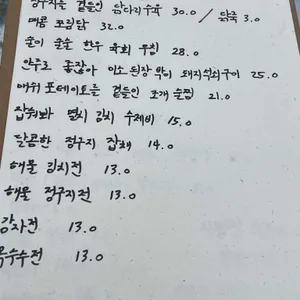 정구지를 곁들인 닭다리수육 30.0 / 닭죽 3.0
매콤 쪼림닭 32.0
순이 순순 한우 육회 무침 28.0
안주로 좋잖아 미소된장 박이 돼지 구이 25.0
매쉬 포테이토를 곁들인 조개 술찜 21.0
잡숴봐 멸치 김치 수제비 15.0
달콤한 정구지 잡채 14.0
해물 김치전 13.0
해물 정구지전 13.0
감자전 13.0
옥수수전 13.0